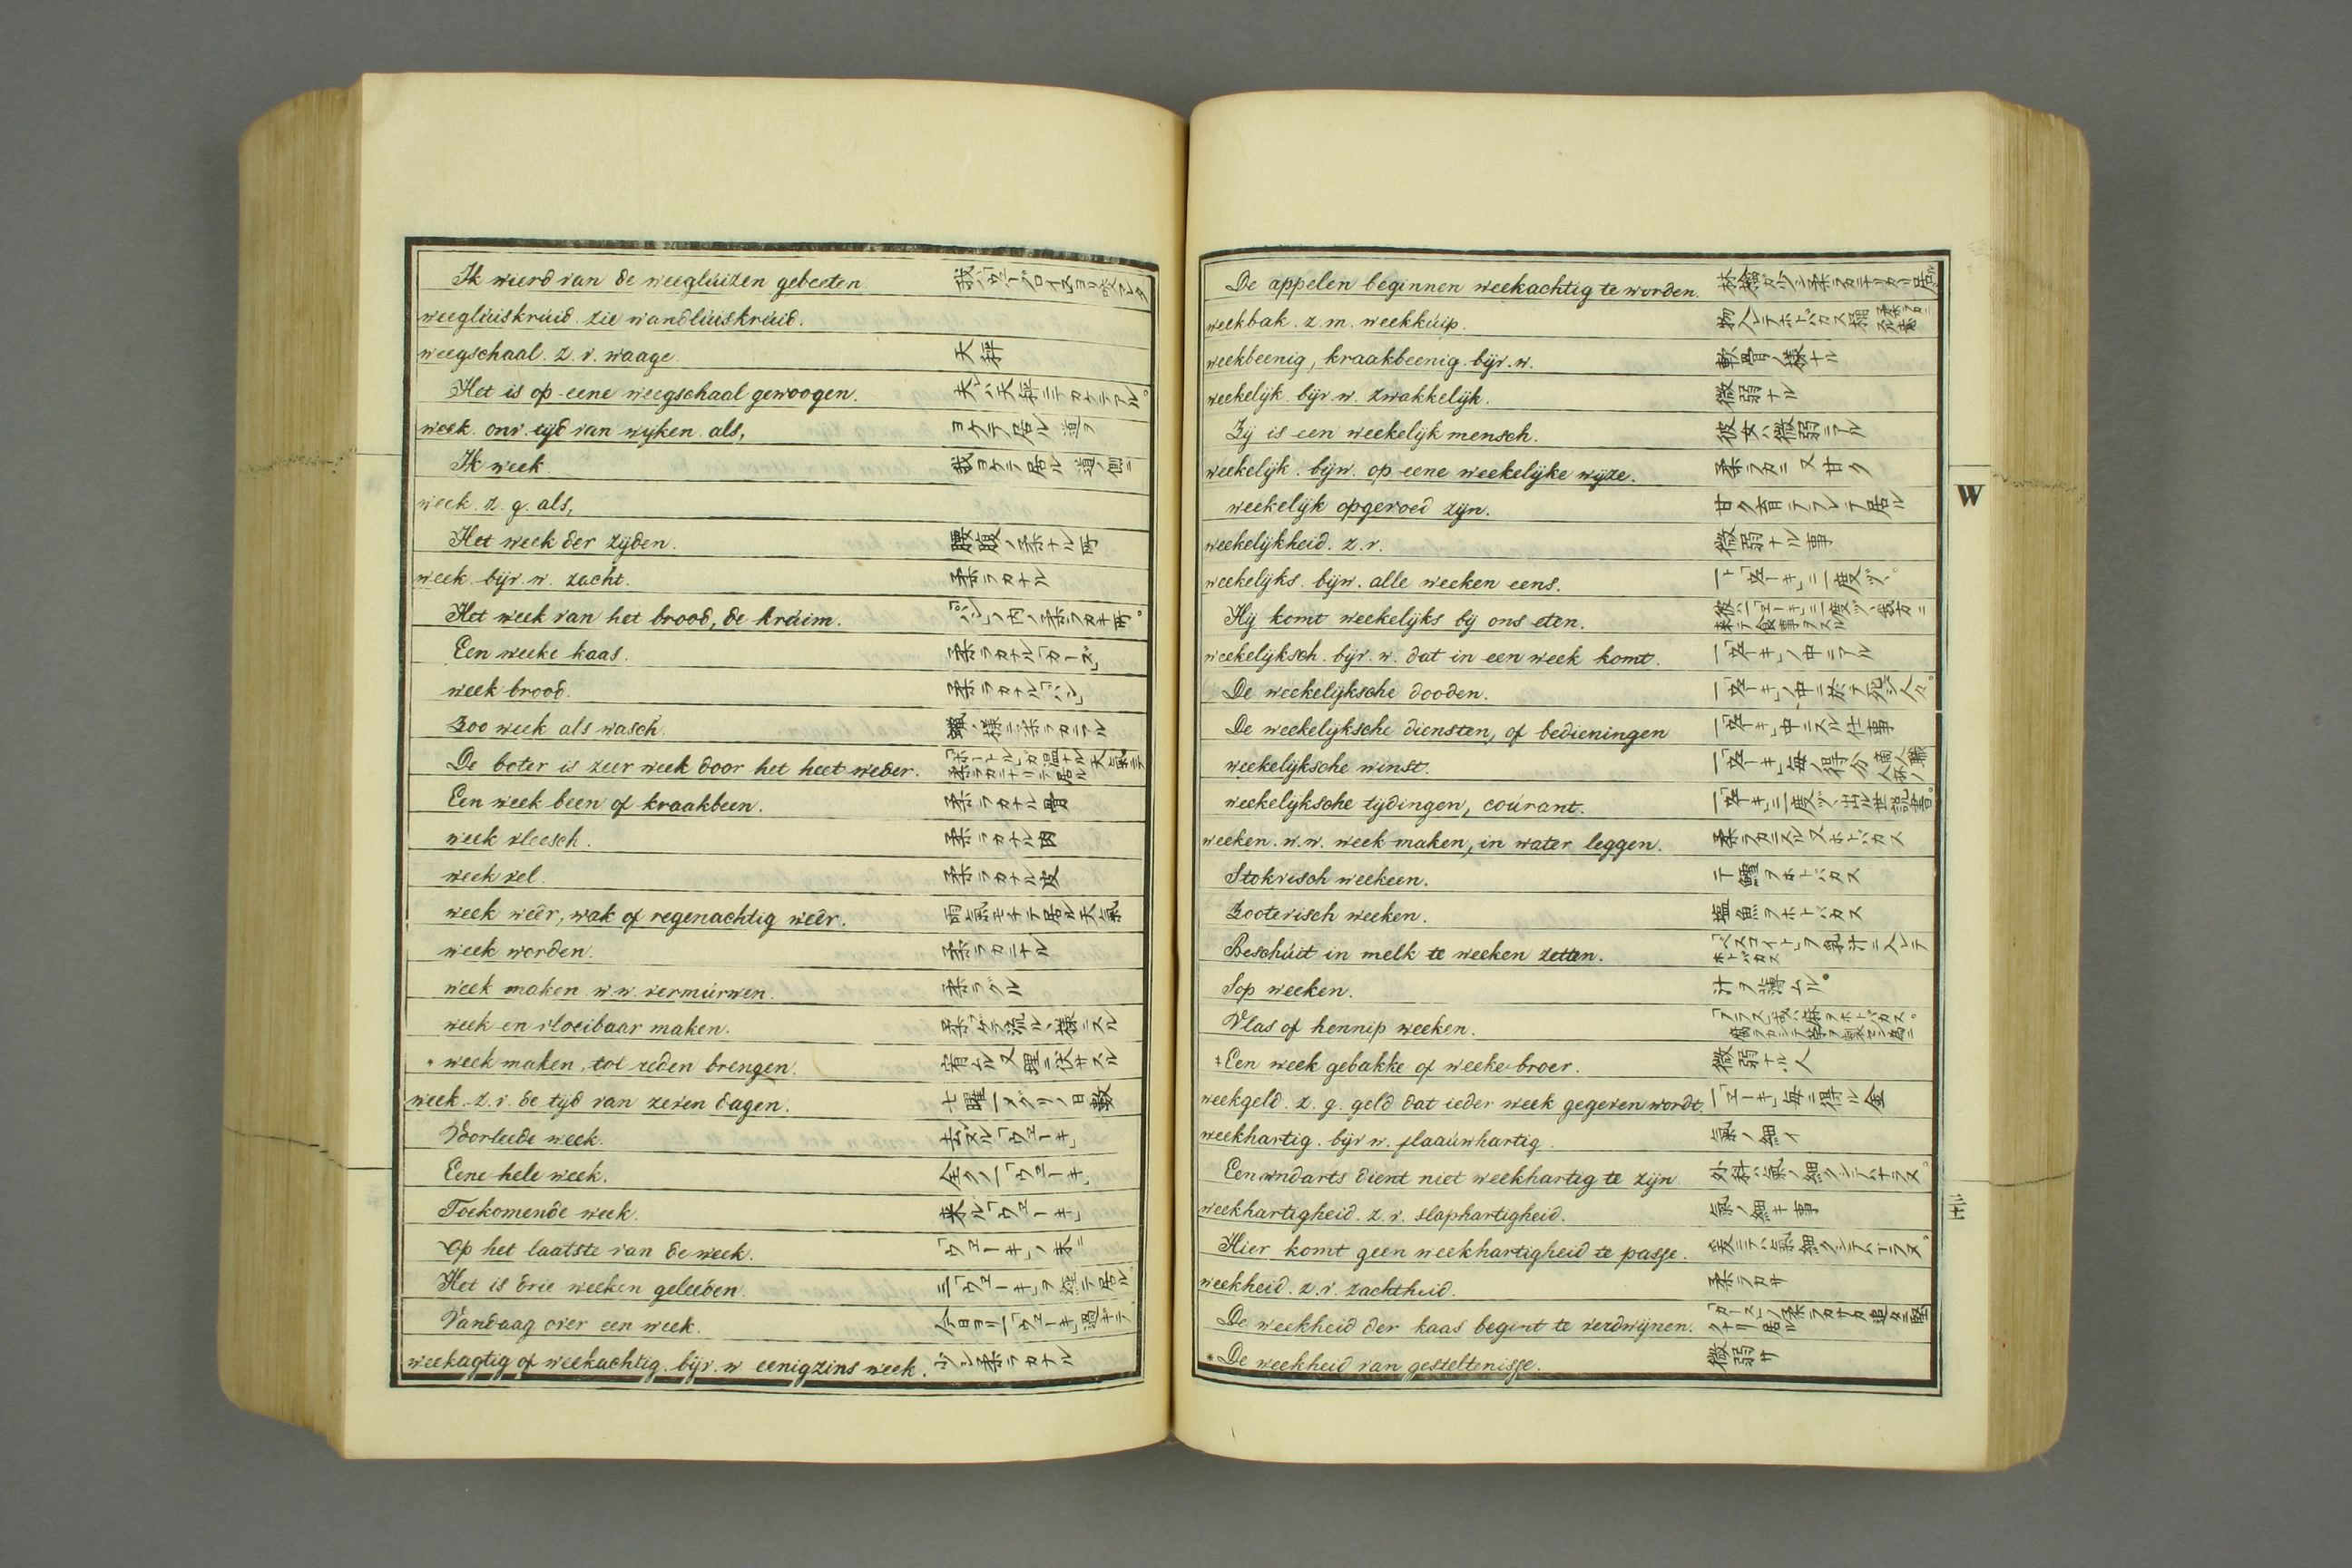 Ik wierd van de weegluizen gebeeten.
weegluiskruid. zie wandluiskruid.
weegschaal. z. v. waage. 天秤
Het is op eene weegschaal gewoogen. 夫ハ天秤ニテカケテアル。
week. onv. tijd van wijken. als, ヨケテ居ル 道ヲ
Ik week. 我ヨケテ居ル 道ノ側ニ
week. z. g. als,
Het week der zijden. 腰腹ノ柔ナル所
week. bijv. w. zacht. 柔ラカナル
Het week van het brood, de kruim. 「パン」ノ内ノ柔ラカキ所。
Een weeke kaas. 柔ラカナル「カース」
week brood. 柔ラカナル「パン」
Zoo week als wasch. 蠟ノ様ニ柔ラカニアル
De boter is zeer week door het heet weder. 「ボートル」カ温ナル天氣ニテ柔ラカニナリテ居ル
Een week been of kraakbeen. 柔ラカナル骨
week vleesch. 柔ラカナル肉
week vel. 柔ラカナル皮
week weêr, wak of regenachtig weêr. 雨氣モチテ居ル天氣
week worden. 柔ラカニナル
week maken. w. w. vermurwen. 柔ラグル
week en vloeibaar maken. 柔ゲテ流ルヽ様ニスル
* week maken, tot reden brengen. 宥ムル又理ニ伏サスル
week. z. v. de tijd van zeven dagen. 七曜一メグリノ日數
Voorleede week. 去ヌル「ウエーキ」
Eene hele week. 全ク一「ウエーキ」
Toekomende week. 来ル「ウエーキ」
Op het laatste van de week. 「ウエーキ」ノ末ニ
Het is drie weeken geleeden. 三「ウエーキ」ヲ經テ居ル
Vandaag over een week. 今日ヨリ一「ウエーキ」過キテ
weekagtig of weekachtig. bijv. w eenigzins week. 少シ柔ラカナル
De appelen beginnen weekachtig te worden.
weekbak. z. m. weekkuip.
weekbeenig, kraakbeenig. bijv. w. 軟骨ノ様ナル
weekelijk. bijv. w. zwakkelijk. 微弱ナル
Zij is een weekelijk mensch. 彼女ハ微弱ニアル
weekelijk. bijw. op eene weekelijke wijze. 柔ラカニ 又甘ク
weekelijk opgevoed zijn. 甘ク育テラレテ居ル
weekelijkheid. z. v. 微弱ナル事
weekelijks. bijw. alle weeken eens. 一ト「ウエーキ」ニ一度ヅヽ。
Hij komt weekelijks bij ons eten. 彼ハ一「ウエーキ」ニ一度ヅヽ我方ニ来テ食事ヲスル
weekelijksch. bijv. w. dat in een week komt. 一「ウエーキ」ノ中ニアル
De weekelijksche dooden. 一「ウエーキ」ノ中ニ於テ死シ人々。
De weekelijksche diensten, of bedieningen 一「ウエーキ」中ニスル仕事
weekelijksche winst. 一「ウエーキ」毎ノ得分
weekelijksche tijdingen, courant. 一「ウエーキ」ニ一度ヅヽ出ル世説書。
weeken. w. w. week maken, in water leggen. 柔ラカニスル又ホトバカス
Stokvisch weekeen. 干鱈ヲホトバカス
Zootevisch weeken. 塩魚ヲホトバカス
Beschuit in melk te weeken zetten. 「ベスコイト」ヲ乳汁ニ入レテホトバカス
Sop weeken. 汁ヲ薄ムル。
Vlas of hennip weeken.
‡ Een week gebakke of weeke broer. 微弱ナル人
weekgeld. z. g. geld dat ieder week gegeven wordt. 一「ウエーキ」毎ニ得ル金
weekhartig. bijv w. flaauwhartig. 氣ノ細イ
Een wndarts dient niet weekhartig te zijn 外科ハ氣ノ細クシテハナラヌ。
weekhartigheid. z. v. slaphartigheid. 氣ノ細キ事
Hier komt geen weekhartigheid te passe. 爰ニテハ氣細クシテハナラヌ。
weekheid. z. v. zachtheid. 柔ラカサ
De weekheid der kaas begint te verdwijnen. 「カース」ノ柔ラカサカ追々ニ堅クナリ居ル
* De weekheid van gesteltenisse. 微弱サ
W